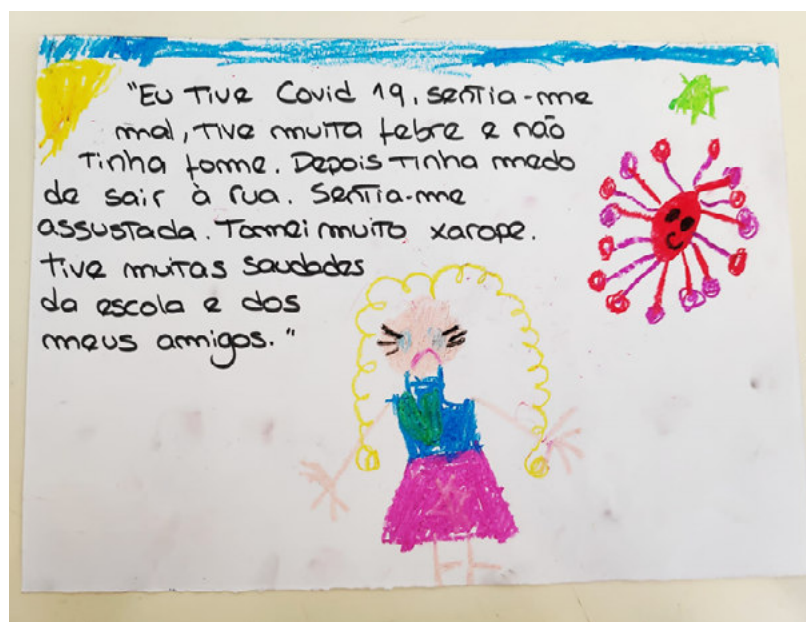 "Eu tive Covid 19, sentia-me
mal, tive muita febre e não
tinha fome. Depois tinha medo
de sair à rua. Sentia-me
assustada. Tomei muito xarope.
tive muitas saudades
da escola e dos
meus amigos."